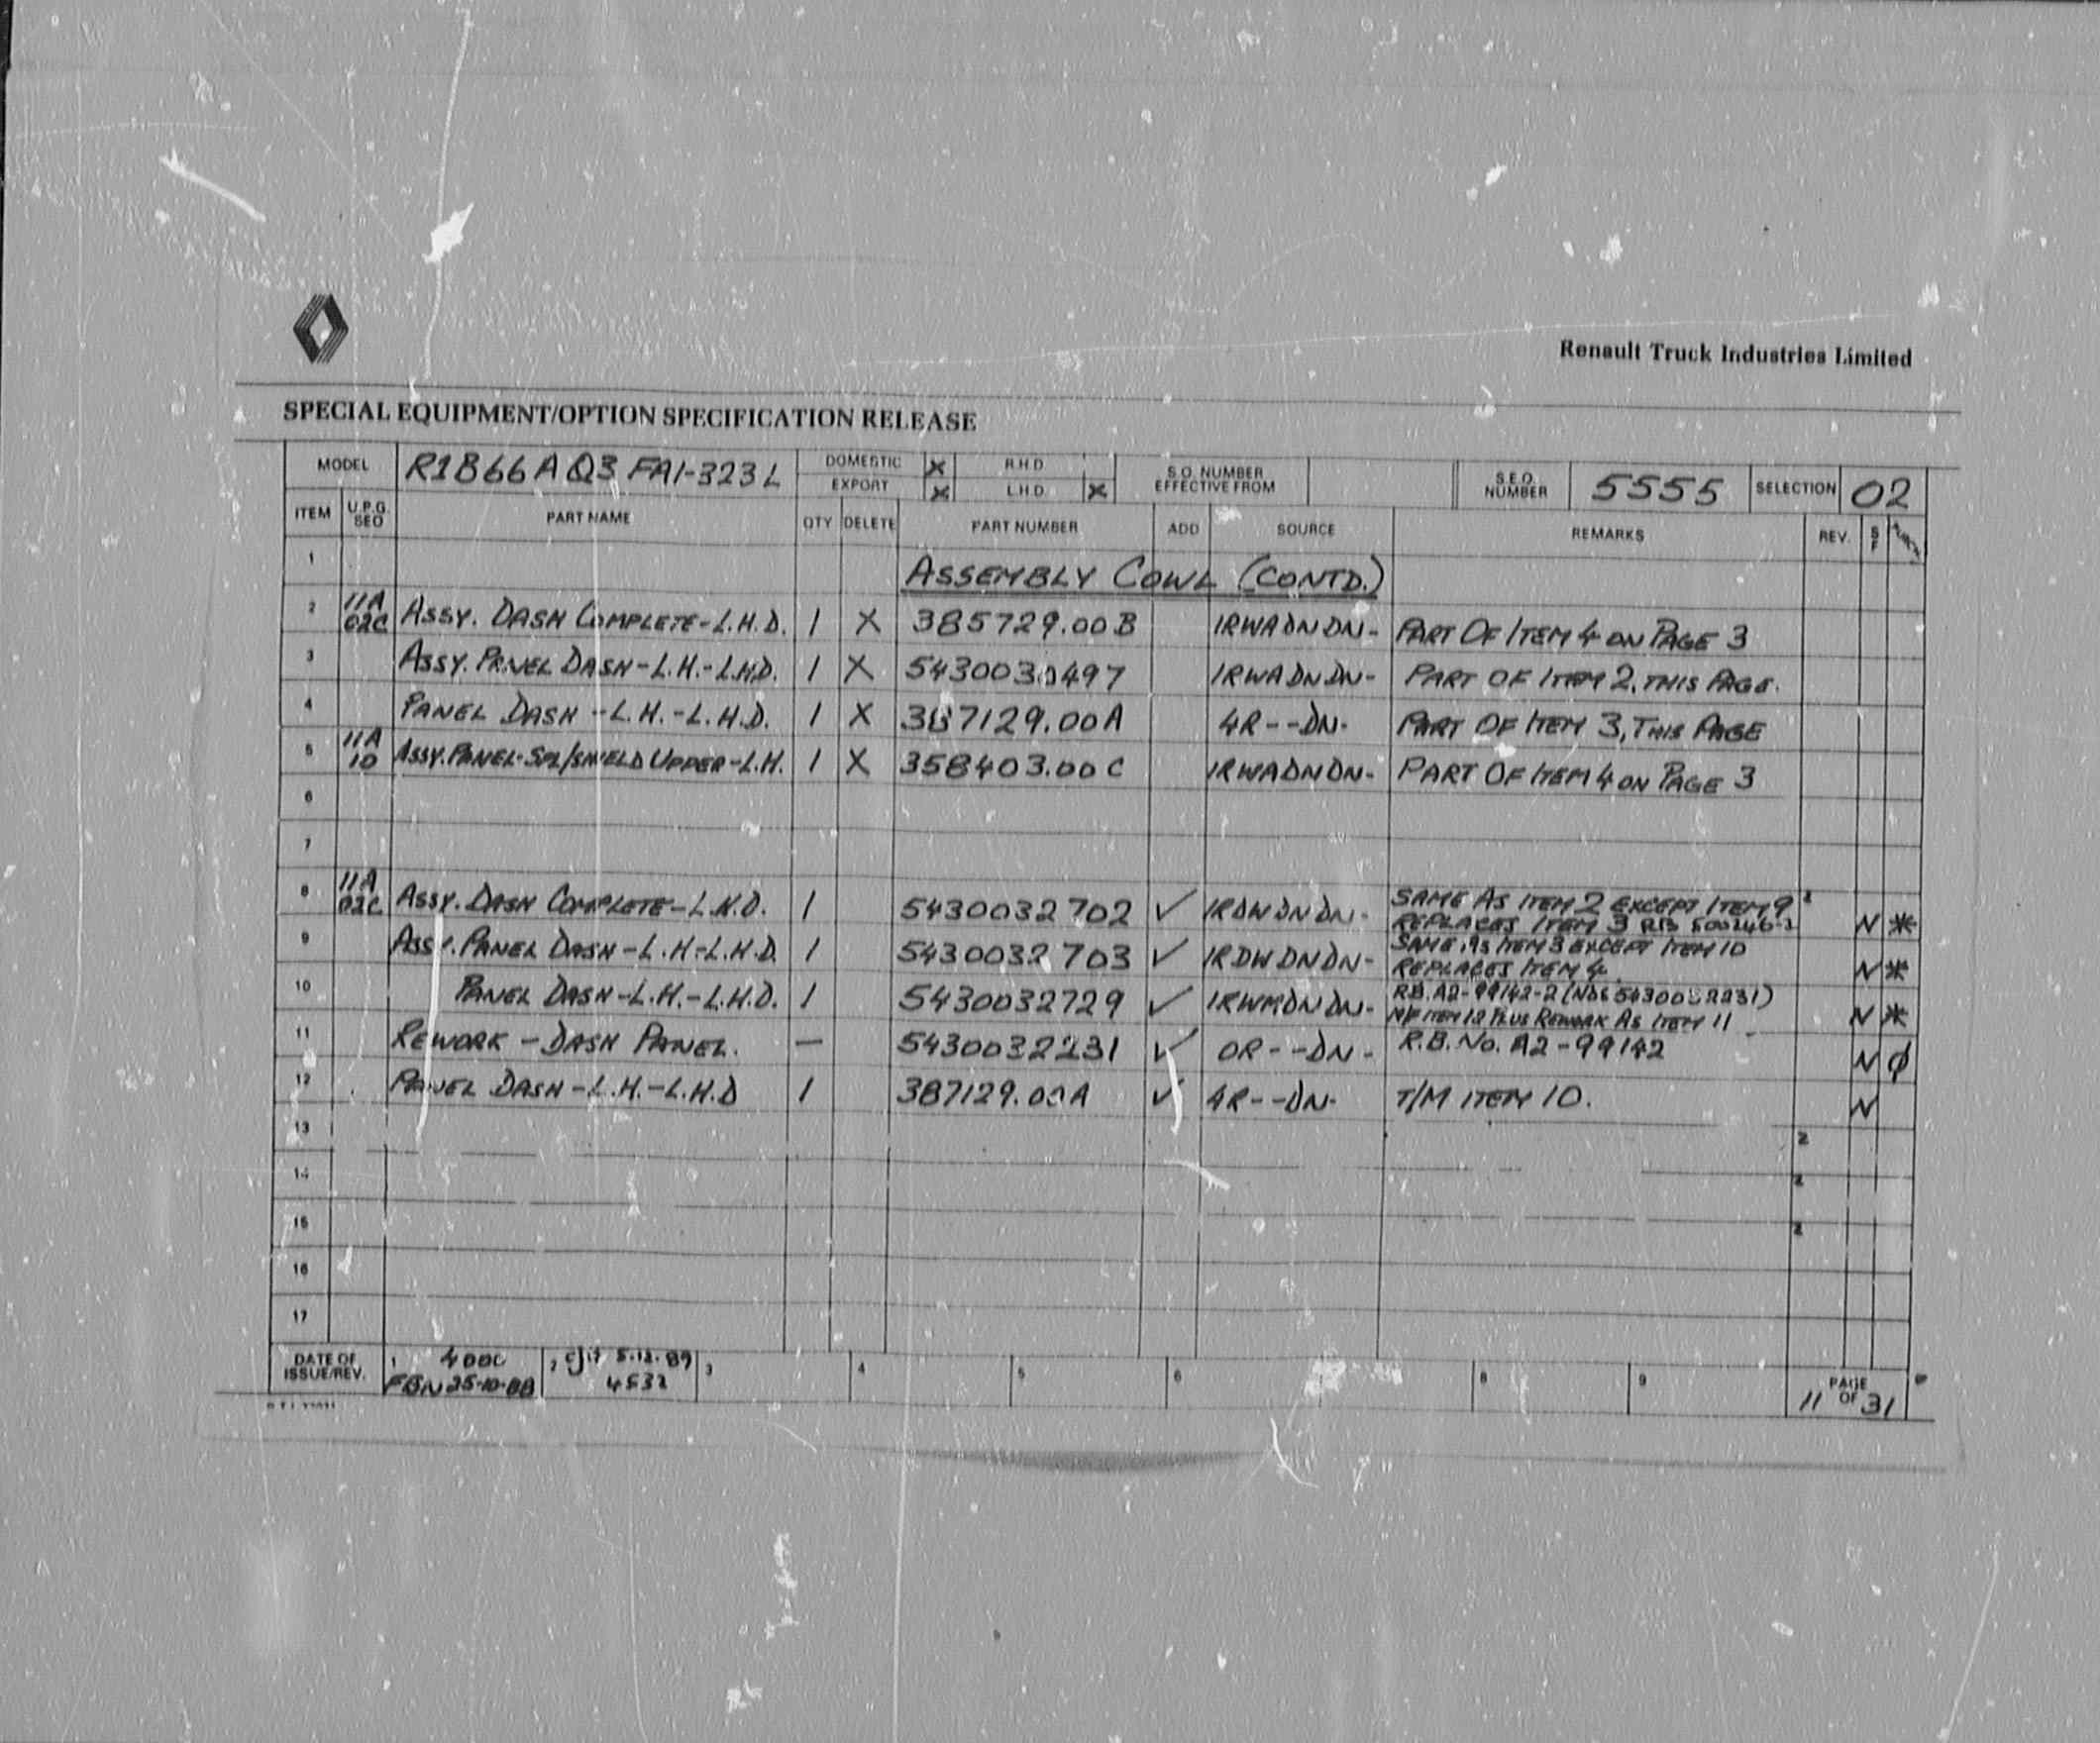 Renault Truck Industries Limited
SPECIAL EQUIPMENT/OPTION SPECIFICATION RELEASE
MODEL R1866AQ3 FA1-323L DOMESTIC X R.H.D S.O. NUMBER EFFECTIVE FROM S.E.O. NUMBER 5555 SELECTION 02
EXPORT X L.H.D X
ITEM U.P.G. SEQ PART NAME QTY DELETE PART NUMBER ADD SOURCE REMARKS REV. S F
1 ASSEMBLY COWL (CONTD.)
2 11A 02C ASSY. DASH COMPLETE-L.H.D. 1 X 385729.00B 1RWADNDN- PART OF ITEM 4 ON PAGE 3
3 ASSY. PANEL DASH-L.H.-L.H.D. 1 X 5430030497 1RWADNDN- PART OF ITEM 2, THIS PAGE.
4 PANEL DASH-L.H.-L.H.D. 1 X 387129.00A 4R--DN- PART OF ITEM 3, THIS PAGE
5 11A 10 ASSY. PANEL-SPL/SHIELD UPPER-L.H. 1 X 358403.00C 1RWADNDN- PART OF ITEM 4 ON PAGE 3
6
7
8 11A 02C ASSY. DASH COMPLETE-L.H.D. 1 5430032702 ✓ 1RDWDNDN- SAME AS ITEM 2 EXCEPT ITEM 9
REPLACES ITEM 3 N *
9 ASSY. PANEL DASH-L.H-L.H.D. 1 5430032703 ✓ 1RDWDNDN- SAME AS ITEM 3 EXCEPT ITEM 10
REPLACES ITEM 4. N *
10 PANEL DASH-L.H.-L.H.D. 1 5430032729 ✓ 1RWMDNDN- R.B. A2-99142-2
M/F ITEM 12 PLUS REWORK AS ITEM 11 N *
11 REWORK-DASH PANEL. - 5430032231 ✓ 0R--DN- R.B. No. A2-99142 N ϕ
12 PANEL DASH-L.H.-L.H.D 1 387129.00A ✓ 4R--DN- T/M ITEM 10. N
13 2
14 2
15 2
16
17
DATE OF ISSUE/REV. 1 400C 2 5.12.89 3 4 5 6 8 9 PAGE 11 OF 31
FBN 25-10-88 4532